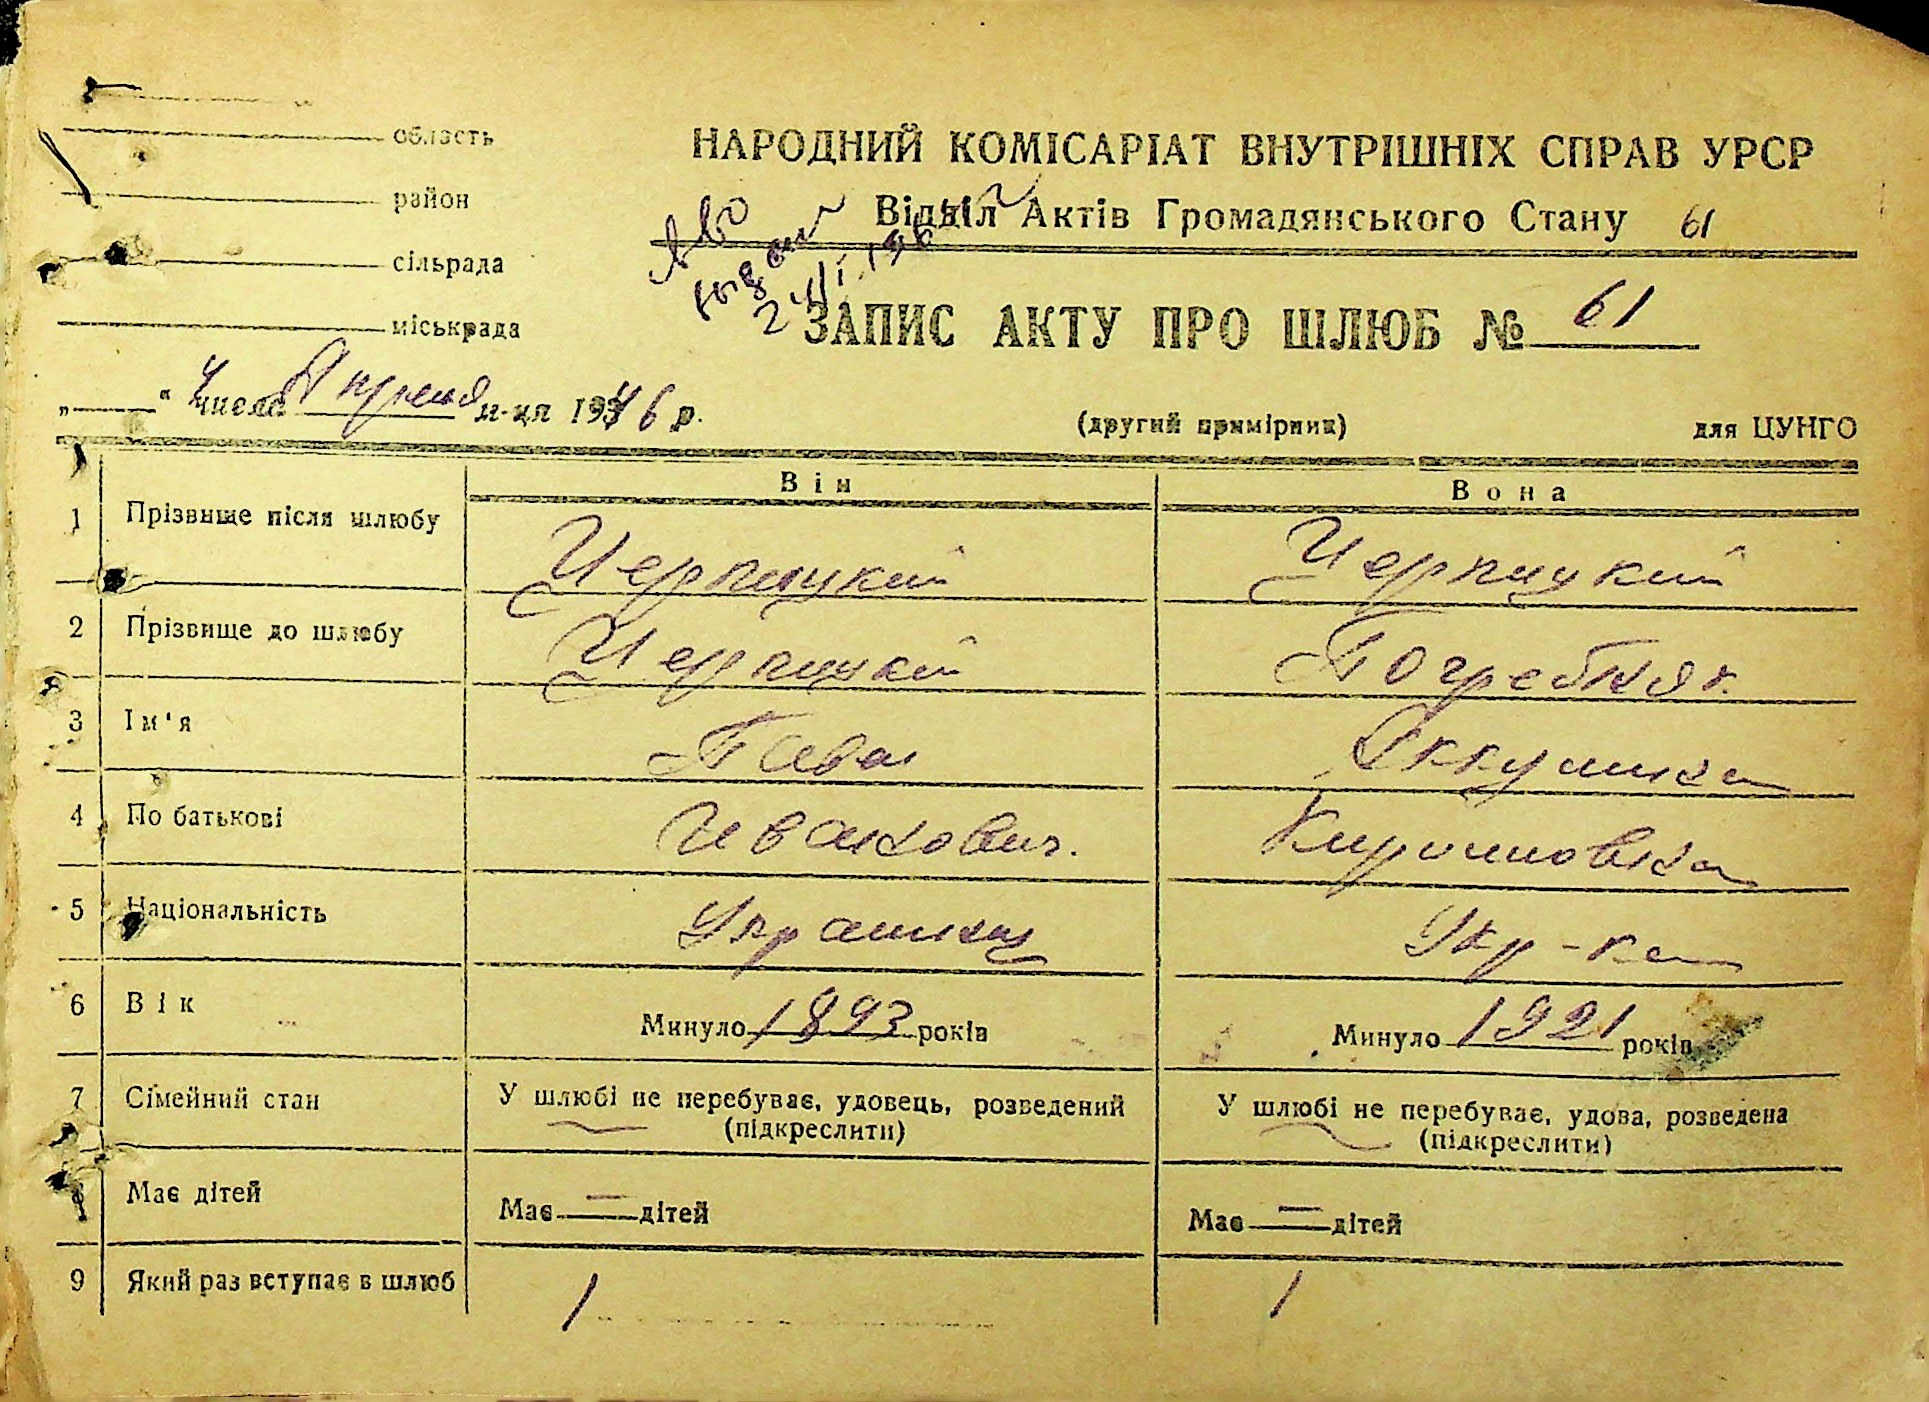 область
район
сільрада
міськрада
НАРОДНИЙ КОМІСАРІАТ ВНУТРІШНІХ СПРАВ УРСР
Відділ Актів Громадянського Стану 61
ЗАПИС АКТУ ПРО ШЛЮБ № 61
„ “ 4 числа Апреля м-ця 1946 р.
(другий примірник)
для ЦУНГО
Він
Вона
1 Прізвище після шлюбу Черницкий Черницкий
2 Прізвище до шлюбу Черницкий Погребняк
3 Ім'я Павел
4 По батькові Иванович. Кириловна
5 Національність Украинец Укр-ка
6 Вік Минуло 1893 років Минуло 1921 років
7 Сімейний стан У шлюбі не перебуває, удовець, розведений (підкреслити) У шлюбі не перебуває, удова, розведена (підкреслити)
8 Має дітей Має — дітей Має — дітей
9 Який раз вступає в шлюб 1 1